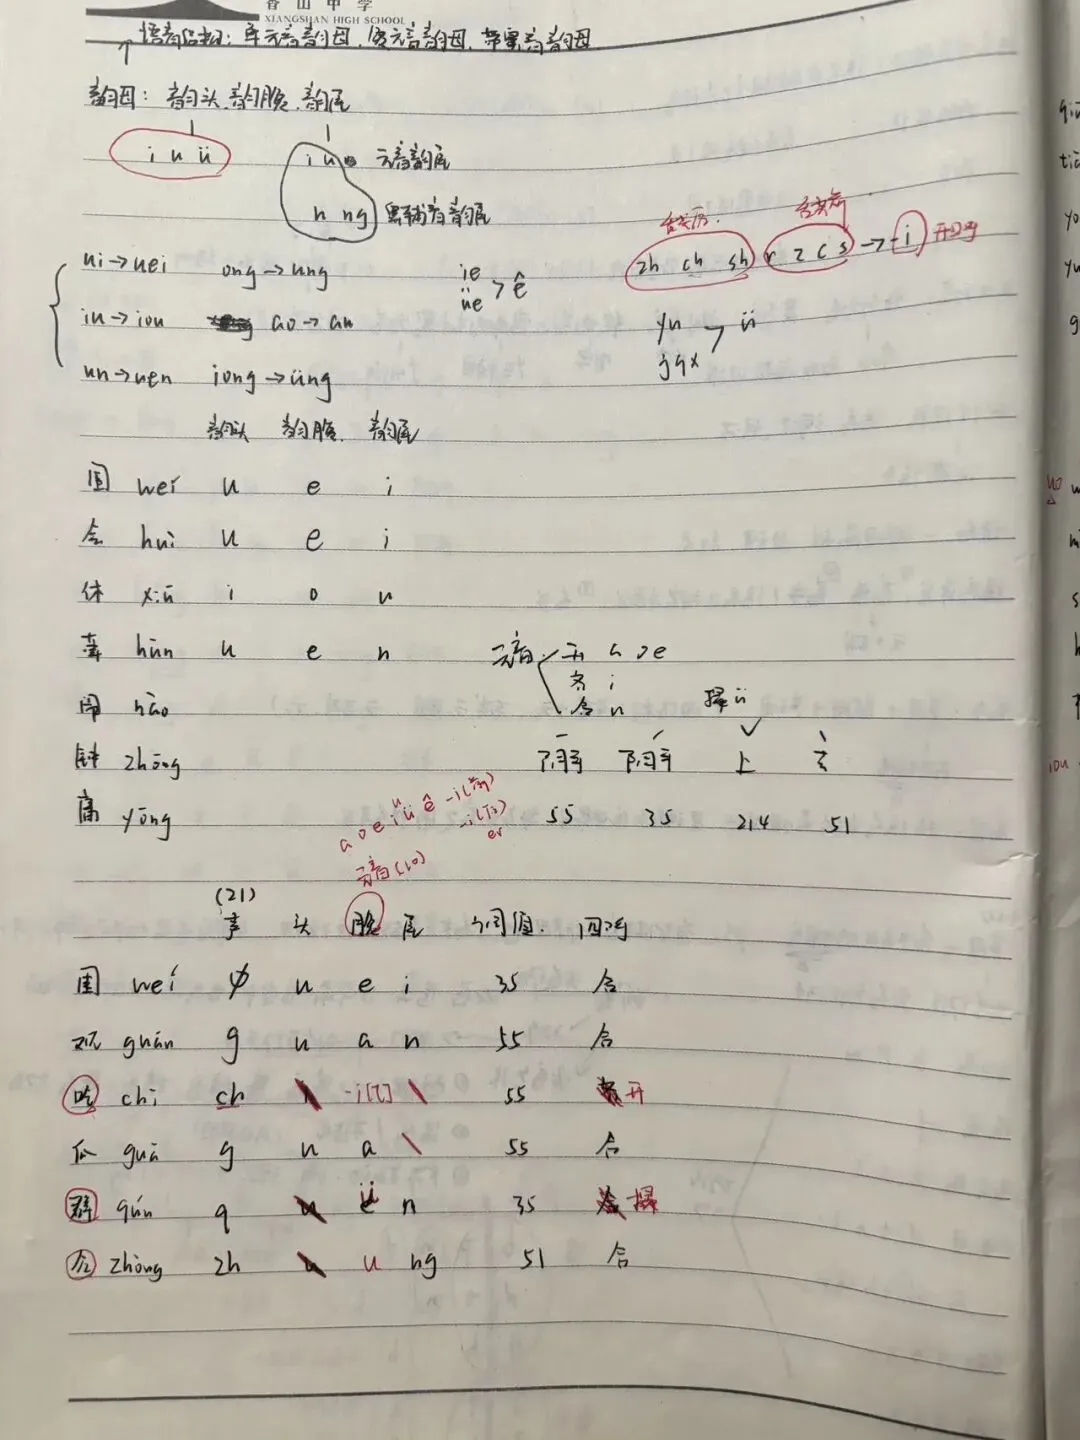 香山中学
XIANGSHAN HIGH SCHOOL
语音结构: 单元音韵母, 复元音韵母, 带鼻音韵母
韵母: 韵头 韵腹 韵尾
i u ü i u o 元音韵尾
n ng 鼻辅音韵尾
舌尖后 舌尖前
zh ch sh r z c s → -i 开口呼
ui → uei ong → ung ie üe > ê
iu → iou ao → au yu jqx > ü
un → uen iong → üng
韵头 韵腹 韵尾
围 wéi u e i
会 huì u e i
休 xiū i o u
荤 hūn u e n 元音 开 a o e
齐 i
闹 nào 合 u 撮 ü
钟 zhōng 阴平 阳平 上 去
痛 yōng 55 35 214 51
a o e i u ü ê -i(前)
-i(后)
er
元音(10)
(21)
声 头 腹 尾 调值 四呼
围 wéi φ u e i 35 合
观 guān g u a n 55 合
吃 chī ch -i[ʅ] \ 55 开
瓜 guā g u a \ 55 合
群 qún q ü n 35 撮
zhòng zh u ng 51 合